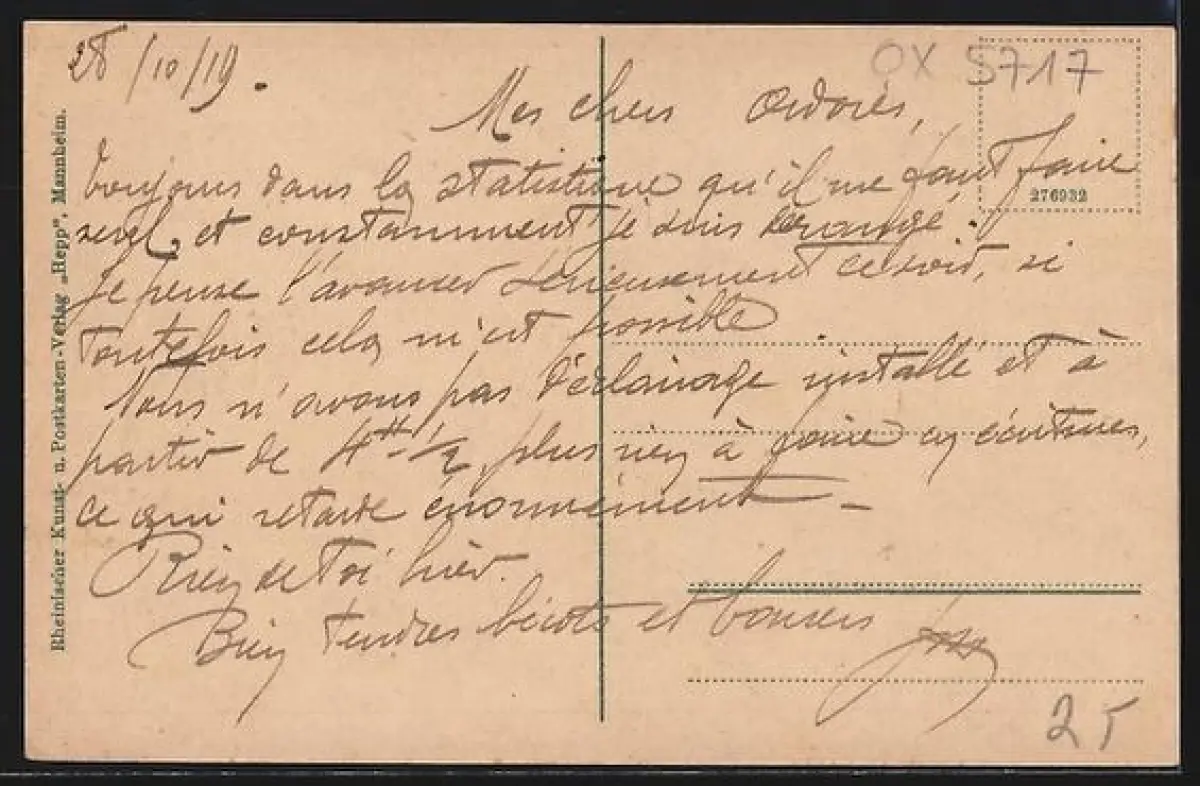 28/10/19.
OX 5717
Mes chers adorés,
Toujours dans la statistique qu'il me faut faire
seul, et constamment je suis dérangé.
Je pense l'avancer sérieusement ce soir, si
toutefois cela m'est possible
Nous n'avons pas d'éclairage installé et à
partir de 4H 1/2, plus rien à faire en écritures,
ce qui retarde énormément –
Rien de Toi hier.
Bien tendres bécots et baisers
276932
Rheinischer Kunst- u. Postkarten-Verlag „Hepp", Mannheim.
25